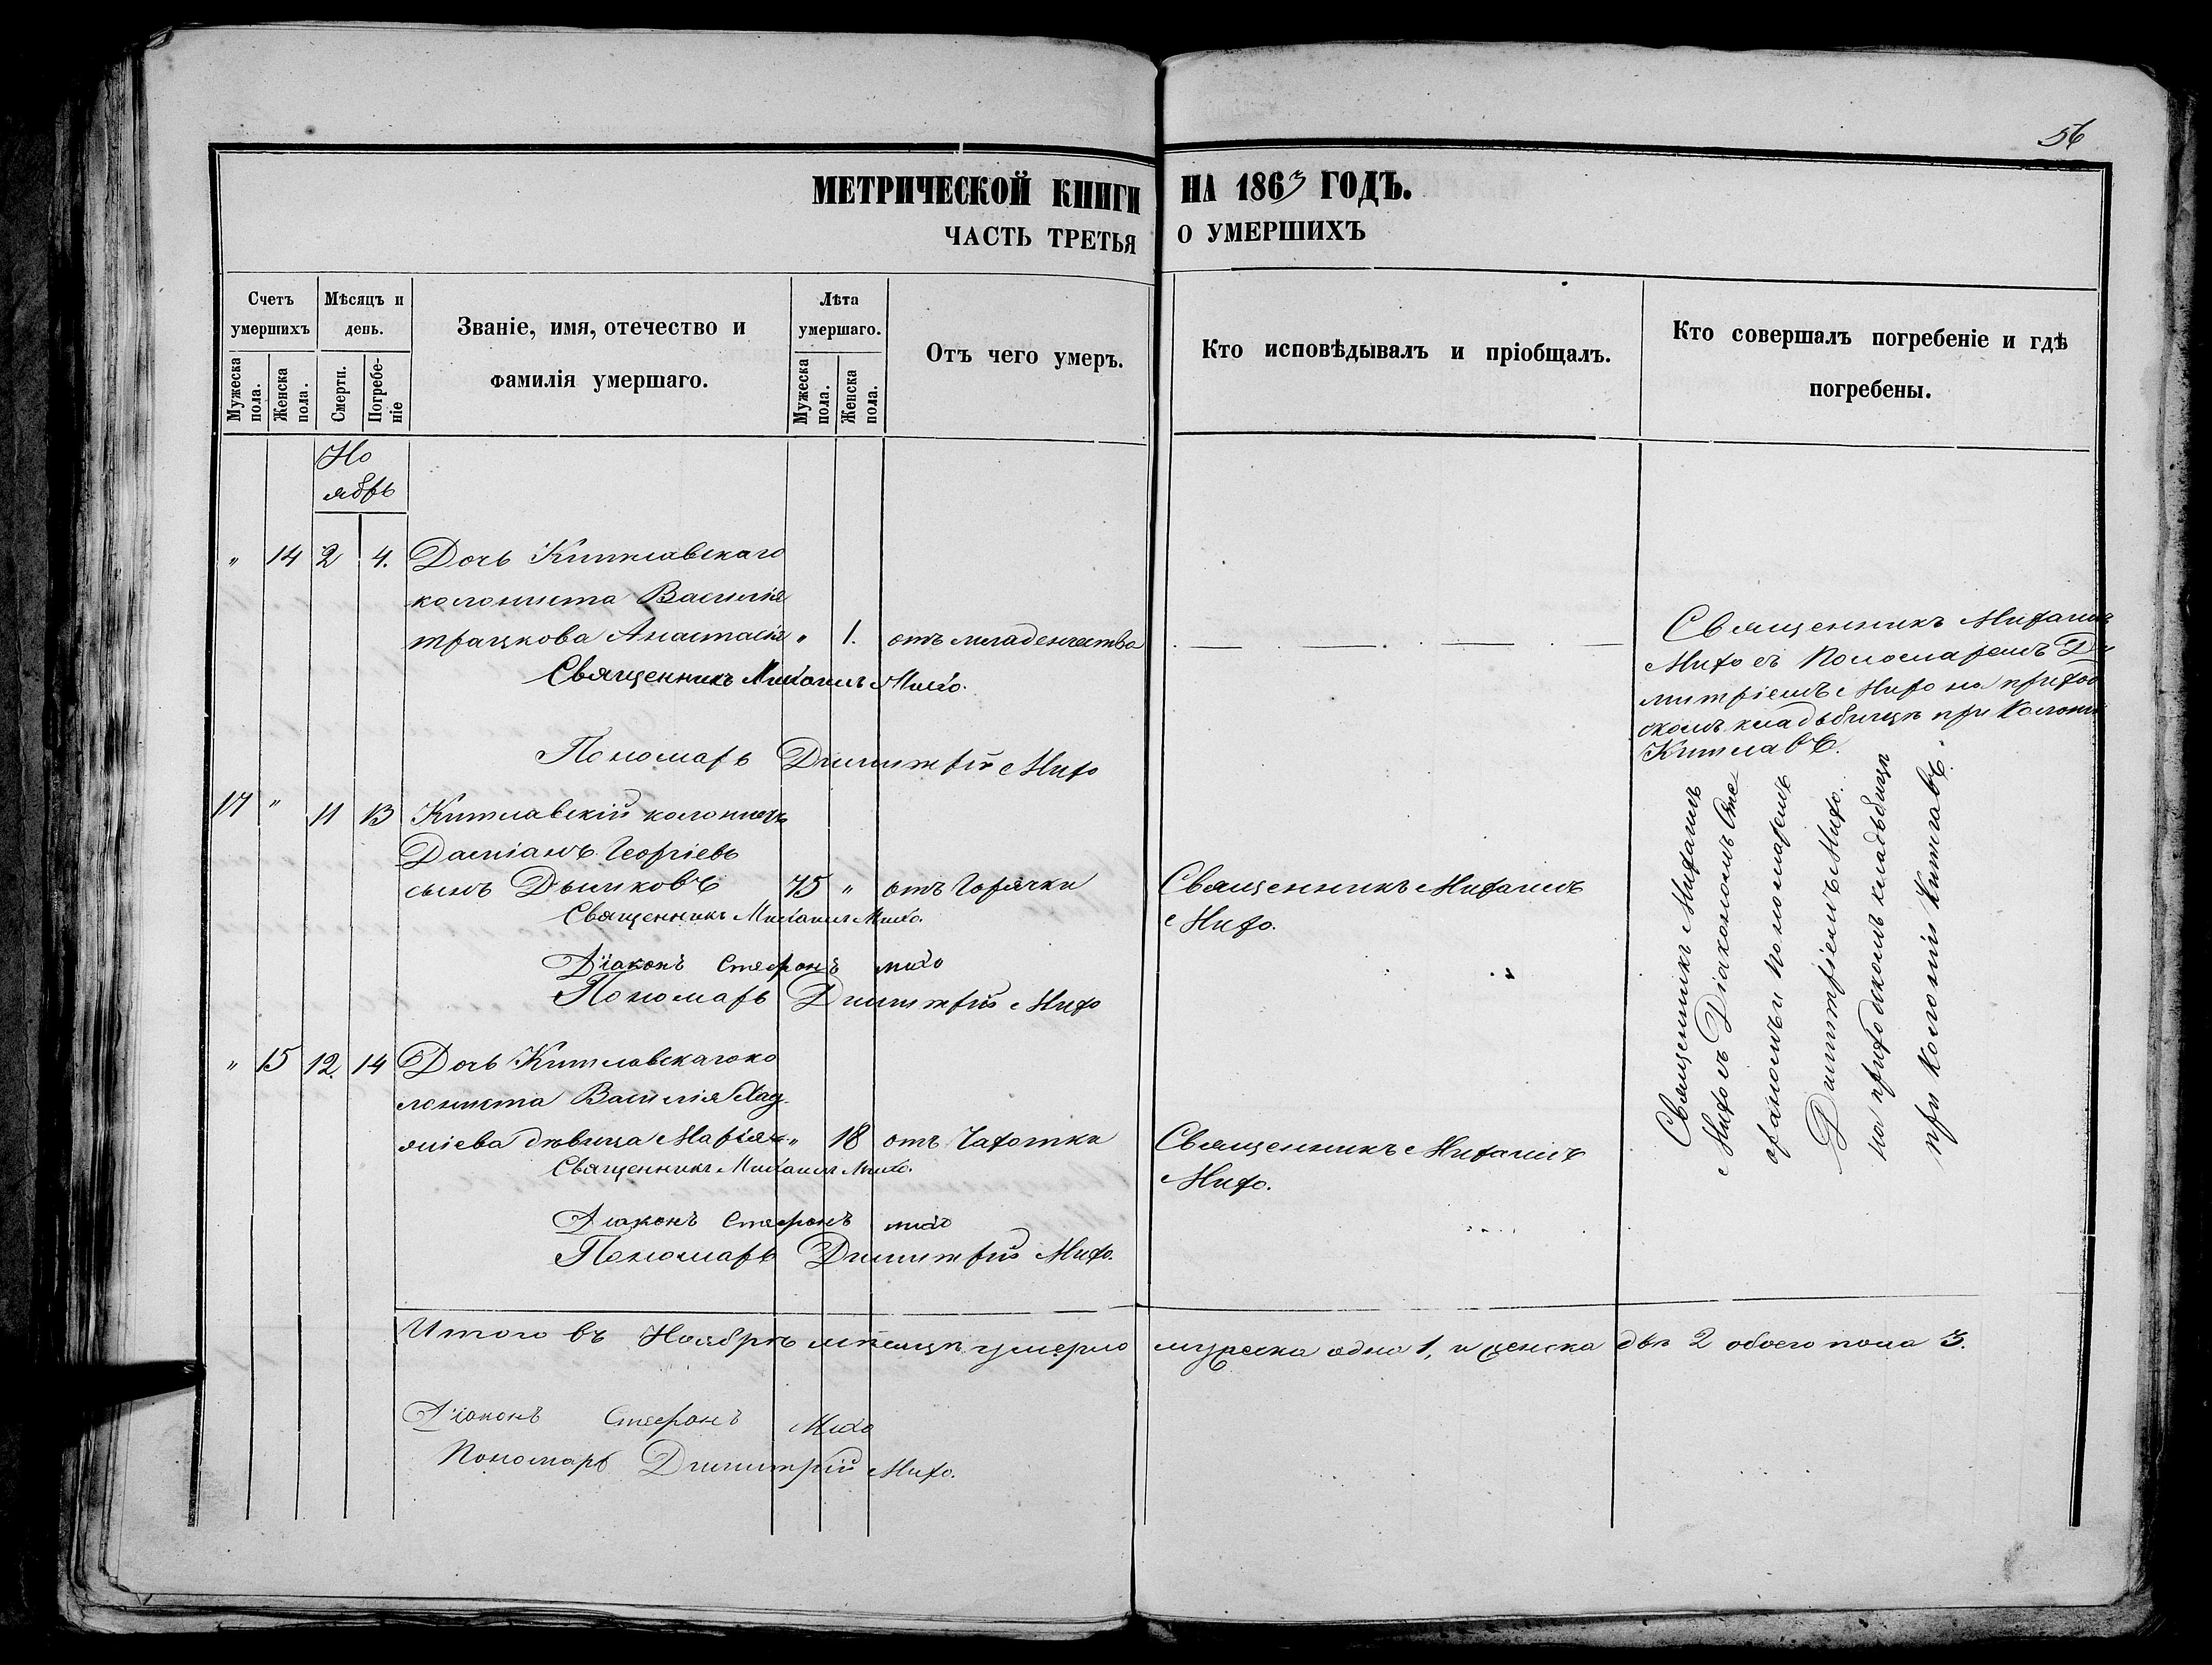 56
МЕТРИЧЕСКОЙ КНИГИ НА 1863 ГОДЪ.
ЧАСТЬ ТРЕТЬЯ О УМЕРШИХЪ
Счетъ умершихъ
Мужеска пола.
Женска пола.
Мѣсяцъ и день.
Смерти.
Погребеніе
Званіе, имя, отечество и
фамилія умершаго.
Лѣта умершаго.
Мужеска пола.
Женска пола.
Отъ чего умеръ.
Кто исповѣдывалъ и пріобщалъ.
Кто совершалъ погребеніе и гдѣ
погребены.
Но
ябрь
" 14 2 4. Дочь Китлавскаго
колониста Василія
Анастасія " 1. отъ младенчества
Священникъ Михаилъ Михо.
Пономарь Димитрій Михо
Священникъ Михаилъ
Михо съ Пономаремъ Ди
митріемъ Михо на приход
скомъ кладьбищѣ при Колоніи
Китлавѣ.
17 " 11 13 Китлавскій колонистъ
Даміанъ Георгіевъ
сынъ Дымковъ 75 " отъ Горячки
Священникъ Михаилъ Михо.
Діаконъ Стефонъ михо
Пономарь Димитрій Михо
Священникъ Михаилъ
Михо.
Священникъ Михаилъ
Михо съ Діакономъ Сте
фаномъ и пономаремъ
Димитріемъ Михо.
на приходскомъ кладьбищѣ
при Колоніи Китлавѣ.
" 15 12. 14 Дочь Китлавскаго ко
лониста Василія Хад
жіева дѣвица Марія " 18 отъ Чахотки
Священникъ Михаилъ Михо.
Діаконъ Стефонъ михо
Пономарь Димитрій Михо.
Священникъ Михаилъ
Михо.
Итого въ Ноябрѣ мѣсяцѣ умерло мужеска одно 1, и женска двѣ 2 обоего пола 3.
Діаконъ Стефонъ Михо
Пономарь Димитрій Михо.